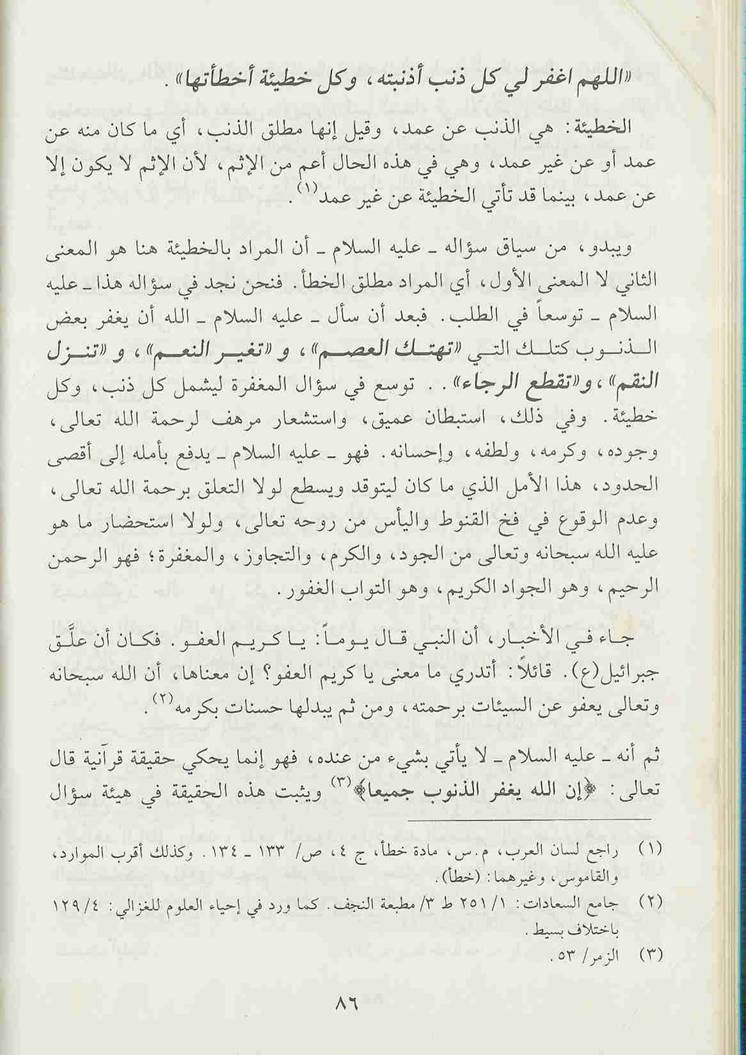 «اللهم اغفر لي كل ذنب أذنبته، وكل خطيئة أخطأتها».
الخطيئة: هي الذنب عن عمد، وقيل إنها مطلق الذنب، أي ما كان منه عن
عمد أو عن غير عمد، وهي في هذه الحال أعم من الإثم، لأن الإثم لا يكون إلا
عن عمد، بينما قد تأتي الخطيئة عن غير عمد(١).
ويبدو، من سياق سؤاله ـ عليه السلام ـ أن المراد بالخطيئة هنا هو المعنى
الثاني لا المعنى الأول، أي المراد مطلق الخطأ. فنحن نجد في سؤاله هذا ـ عليه
السلام ـ توسعاً في الطلب. فبعد أن سأل ـ عليه السلام ـ الله أن يغفر بعض
الـذنـوب كتلـك التـي «تهتـك العصـم»، و «تغيـر النعـم»، و «تنـزل
النقم»، و«تقطع الرجاء».. توسع في سؤال المغفرة ليشمل كل ذنب، وكل
خطيئة. وفي ذلك، استبطان عميق، واستشعار مرهف لرحمة الله تعالى،
وجوده، وكرمه، ولطفه، وإحسانه. فهو ـ عليه السلام ـ يدفع بأمله إلى أقصى
الحدود، هذا الأمل الذي ما كان ليتوقد ويسطع لولا التعلق برحمة الله تعالى،
وعدم الوقوع في فخ القنوط واليأس من روحه تعالى، ولولا استحضار ما هو
عليه الله سبحانه وتعالى من الجود، والكرم، والتجاوز، والمغفرة؛ فهو الرحمن
الرحيم، وهو الجواد الكريم، وهو التواب الغفور.
جـاء فـي الأخبـار، أن النبـي قـال يـومـاً: يـا كـريـم العفـو. فكـان أن علَّـق
جبرائيل(ع). قائلاً: أتدري ما معنى يا كريم العفو؟ إن معناها، أن الله سبحانه
وتعالى يعفو عن السيئات برحمته، ومن ثم يبدلها حسنات بكرمه(٢).
ثم أنه ـ عليه السلام ـ لا يأتي بشيء من عنده، فهو إنما يحكي حقيقة قرآنية قال
تعالى: ﴿إن الله يغفر الذنوب جميعا﴾(٣) ويثبت هذه الحقيقة في هيئة سؤال
(١) راجع لسان العرب، م.س، مادة خطأ، ج ٤، ص/ ١٣٣ ـ ١٣٤. وكذلك أقرب الموارد،
والقاموس، وغيرهما: (خطأ).
(٢) جامع السعادات: ١/ ٢٥١ ط ٣/ مطبعة النجف. كما ورد في إحياء العلوم للغزالي: ٤/ ١٢٩
باختلاف بسيط.
(٣) الزمر/ ٥٣.
٨٦